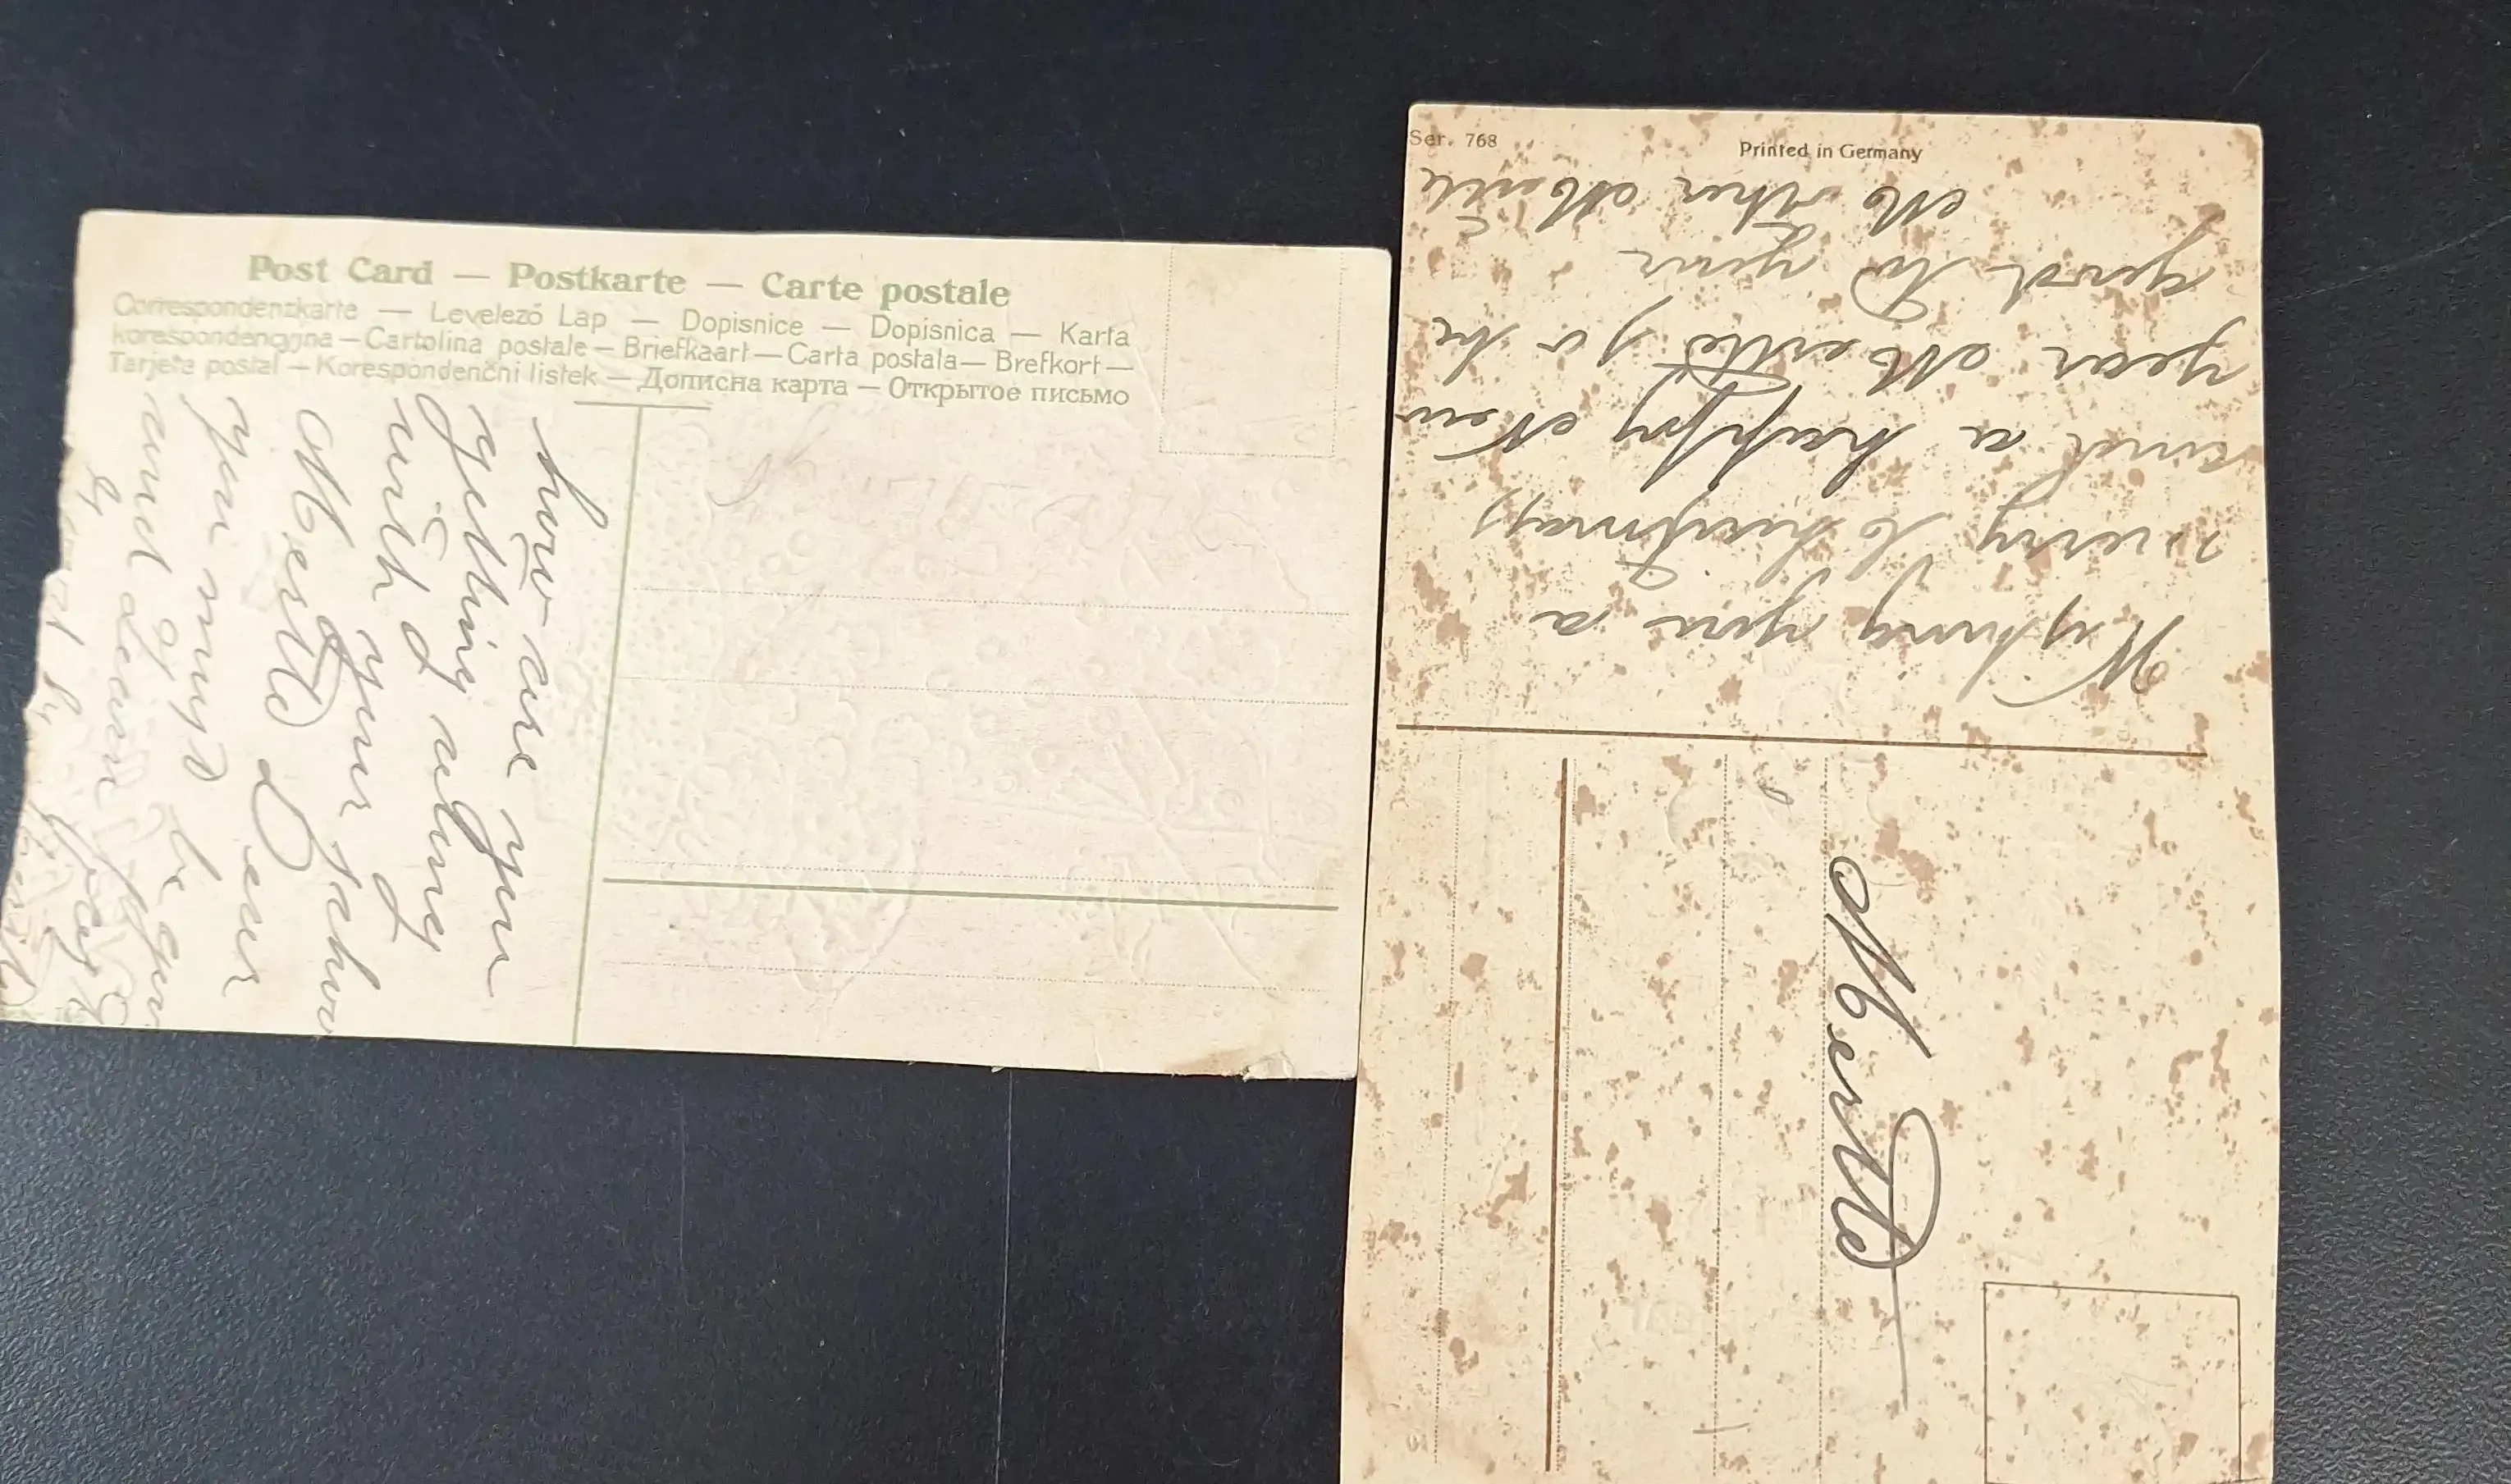 Post Card — Postkarte — Carte postale
Correspondenzkarte — Levelező Lap — Dopisnice — Dopisnica — Karta
korespondencyjna — Cartolina postale — Briefkaart — Carta postala — Brefkort —
Tarjeta postal — Korespondenčni listek — Дописна карта — Открытое письмо
how are you
getting along
with your schoo
Mertle Dear
you must be
and Learn your
Ser. 768
Printed in Germany
Wishing you a
merry
and a happy New
year Mertle be
good to your
Mother Mertle
Mertle